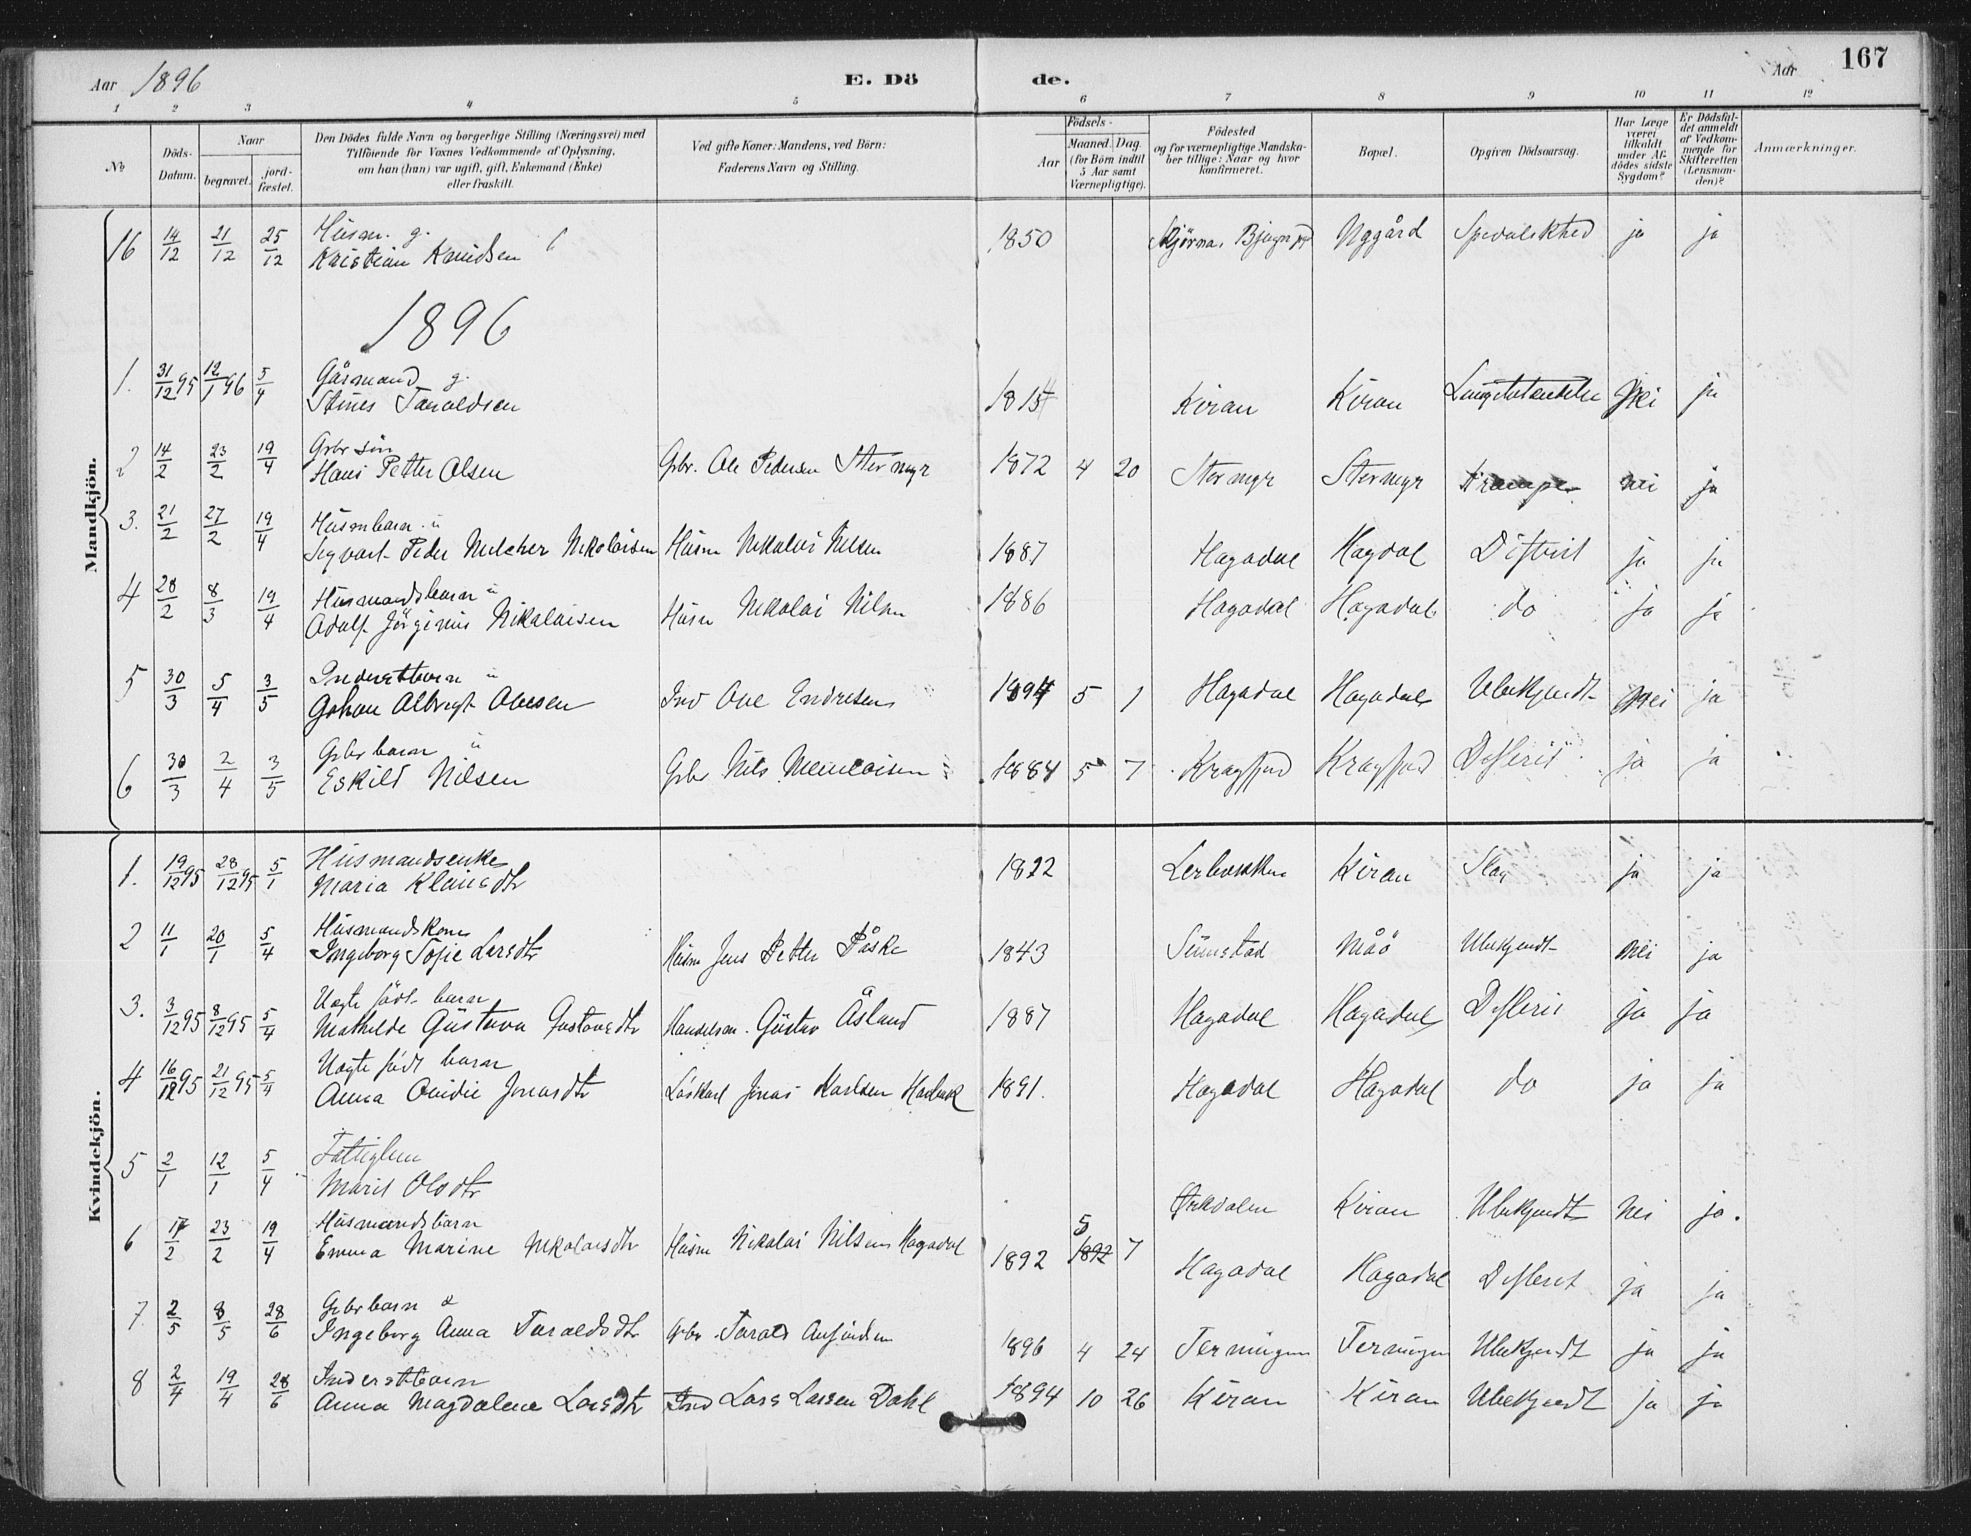 167
Aar 1896 E. Dö de. Aar
1 2 3 4 5 6 7 8 9 10 11 12
No
Döds-Datum.
Naar
begravet.
jord-fæstet.
Den Dödes fulde Navn og borgerlige Stilling (Næringsvei) med
Tilföiende for Voxnes Vedkommende af Oplysning,
om han (hun) var ugift, gift, Enkemand (Enke)
eller fraskilt.
Ved gifte Koner: Mandens, ved Börn:
Faderens Navn og Stilling.
Födsels-
Aar
Maaned. Dag.
(for Börn indtil
5 Aar samt
Værnepligtige).
Födested
og for værnepligtige Mandska-
ber tillige: Naar og hvor
konfirmeret.
Bopæl.
Opgiven Dödsaarsag.
Har Læge
været
tilkaldt
under Af-
dödes sidste
Sygdom?
Er Dödsfal-
det anmeldt
af Vedkom-
mende for
Skifteretten
(Lensman-
den)?
Anmærkninger.
Mandkjön.
16 14/12 21/12 25/12 Husm. g.
Kristian Knudsen 1850 Bjugn Nygård Spedalskhed ja ja
1896
1. 31/12 95 12/1 96 5/4 Gårmand g.
Taraldsen 1815 Kiran Kiran nei ja
2 14/2 23/2 19/4 Gbr søn
Hans Petter Olsen Gbr. Ole Pedersen Stormyr 1872 4 20 Stormyr Stormyr Krampe nei ja
3. 21/2 27/2 19/4 Husmbarn u
Sigvart Peder Melcher Nikolaisen Husm Nikolai Nilsen 1887 Hagadal Hagdal Difterit ja ja
4 28/2 8/3 19/4 Husmandsbarn u
Adolf Jörginus Nikolaisen Husm Nikolai Nilsen 1886 Hagadal Hagadal do ja ja
5 30/3 5/4 3/5 Inderstbarn u
Johan Albregt Ovesen Ind Ove Endresen 1894 5 1 Hagadal Hagadal Ubekjendt nei ja
6 30/3 2/4 3/5 Gbr barn u
Eskild Nilsen Gbr Nils 1884 5 7 Kragfjord Kragfjord Difterit ja ja
Kvindekjön.
1. 19/12 95 28/12 95 5/1 Husmandsenke
Maria Klausdtr 1822 Lerbækken Kiran Slag ja ja
2 11/1 20/1 5/4 Husmandskone
Ingeborg Sofie Larsdtr Husm Jens Petter Påske 1843 Sumstad Måö Ubekjendt nei ja
3. 3/12 95 8/12 95 5/4 Uegte födt barn
Mathilde Gustava Gustavsdtr Handelsm. Gustav Åsland 1887 Hagadal Hagadal Difteris ja ja
4 16/12 95 21/12 95 5/4 Uegte födt barn
Anna Ovidie Jonasdtr Löskarl Jonas Karlsen 1891. Hagadal Hagadal do ja ja
5 2/1 12/1 5/4 Fattiglem
Marit Olsdtr Ørkdalen Kiran Ubekjendt nei ja.
6 17/2 23/2 19/4 Husmandsbarn
Emma Marine Nikolaisdtr Husm Nikolai Nilsen Hagadal 1892 5 1892 7 Hagadal Hagadal Difterit ja ja
7. 2/5 8/5 28/6 Gbr barn
Ingeborg Anna Taraldsdtr Gbr Tarald Anfindsen 1896 4 24 Terningen Terningen Ubekjendt ja ja
8 2/4 19/4 28/6 Inderstbarn
Anna Magdalene Larsdtr Ind Lars Larsen Dahl 1894 10 26 Kiran Kiran Ubekjendt ja ja